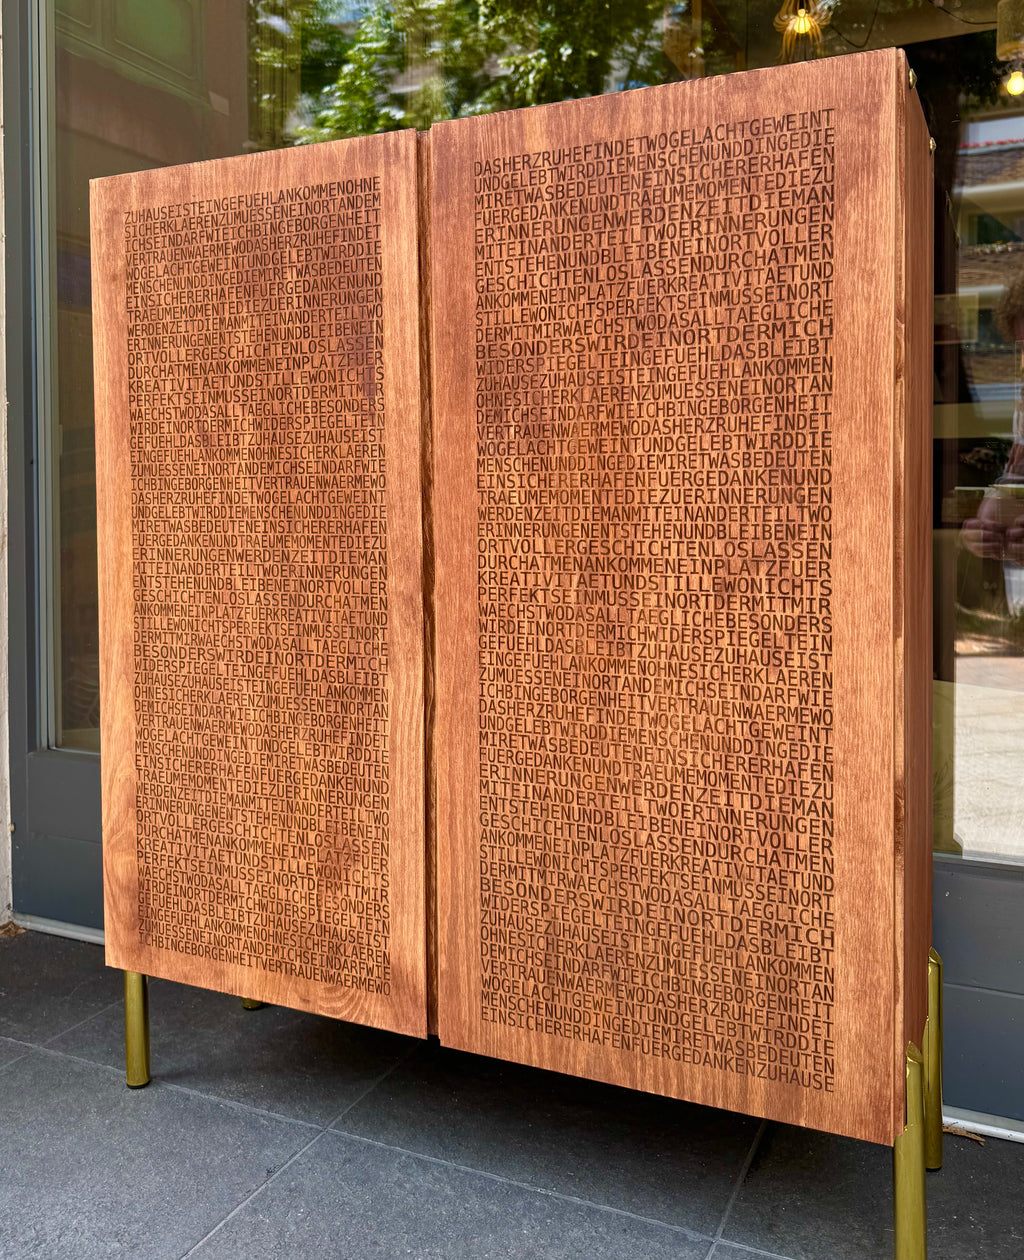 ZUHAUSEISTEINGEFUEHLANKOMMENOHNE
SICHERKLAERENZUMUESSENEINORTANDEM
ICHSEINDARFWIEICHBINGEBORGENHEIT
VERTRAUENWAERMEWODASHERZRUHEFINDET
WOGELACHTGEWEINTUNDGELEBTWIRDDIE
MENSCHENUNDDINGEDIEMIRETWASBEDEUTEN
EINSICHERERHAFENFUERGEDANKENUND
TRAEUMEMOMENTEDIEZUERINNERUNGEN
WERDENZEITDIEMANMITEINANDERTEILTWO
ERINNERUNGENENTSTEHENUNDBLEIBENEIN
ORTVOLLERGESCHICHTENLOSLASSEN
DURCHATMENANKOMMENEINPLATZFUER
KREATIVITAETUNDSTILLEWONICHTS
PERFEKTSEINMUSSEINORTDERMITMIR
WAECHSTWODASALLTAEGLICHEBESONDERS
WIRDEINORTDERMICHWIDERSPIEGELTEIN
GEFUEHLDASBLEIBTZUHAUSEZUHAUSEIST
EINGEFUEHLANKOMMENOHNESICHERKLAEREN
ZUMUESSENEINORTANDEMICHSEINDARFWIE
ICHBINGEBORGENHEITVERTRAUENWAERMEWO
DASHERZRUHEFINDETWOGELACHTGEWEINT
UNDGELEBTWIRDDIEMENSCHENUNDDINGEDIE
MIRETWASBEDEUTENEINSICHERERHAFEN
FUERGEDANKENUNDTRAEUMEMOMENTEDIEZU
ERINNERUNGENWERDENZEITDIEMAN
MITEINANDERTEILTWOERINNERUNGEN
ENTSTEHENUNDBLEIBENEINORTVOLLER
GESCHICHTENLOSLASSENDURCHATMEN
ANKOMMENEINPLATZFUERKREATIVITAETUND
STILLEWONICHTSPERFEKTSEINMUSSEINORT
DERMITMIRWAECHSTWODASALLTAEGLICHE
BESONDERSWIRDEINORTDERMICH
WIDERSPIEGELTEINGEFUEHLDASBLEIBT
ZUHAUSEZUHAUSEISTEINGEFUEHLANKOMMEN
OHNESICHERKLAERENZUMUESSENEINORTAN
DEMICHSEINDARFWIEICHBINGEBORGENHEIT
VERTRAUENWAERMEWODASHERZRUHEFINDET
WOGELACHTGEWEINTUNDGELEBTWIRDDIE
MENSCHENUNDDINGEDIEMIRETWASBEDEUTEN
EINSICHERERHAFENFUERGEDANKENUND
TRAEUMEMOMENTEDIEZUERINNERUNGEN
WERDENZEITDIEMANMITEINANDERTEILTWO
ERINNERUNGENENTSTEHENUNDBLEIBENEIN
ORTVOLLERGESCHICHTENLOSLASSEN
DURCHATMENANKOMMENEINPLATZFUER
KREATIVITAETUNDSTILLEWONICHTS
PERFEKTSEINMUSSEINORTDERMITMIR
WAECHSTWODASALLTAEGLICHEBESONDERS
WIRDEINORTDERMICHWIDERSPIEGELTEIN
GEFUEHLDASBLEIBTZUHAUSEZUHAUSEIST
EINGEFUEHLANKOMMENOHNESICHERKLAEREN
ZUMUESSENEINORTANDEMICHSEINDARFWIE
ICHBINGEBORGENHEITVERTRAUENWAERMEWO
DASHERZRUHEFINDETWOGELACHTGEWEINT
UNDGELEBTWIRDDIEMENSCHENUNDDINGEDIE
MIRETWASBEDEUTENEINSICHERERHAFEN
FUERGEDANKENUNDTRAEUMEMOMENTEDIEZU
ERINNERUNGENWERDENZEITDIEMAN
MITEINANDERTEILTWOERINNERUNGEN
ENTSTEHENUNDBLEIBENEINORTVOLLER
GESCHICHTENLOSLASSENDURCHATMEN
ANKOMMENEINPLATZFUERKREATIVITAETUND
STILLEWONICHTSPERFEKTSEINMUSSEINORT
DERMITMIRWAECHSTWODASALLTAEGLICHE
BESONDERSWIRDEINORTDERMICH
WIDERSPIEGELTEINGEFUEHLDASBLEIBT
ZUHAUSEZUHAUSEISTEINGEFUEHLANKOMMEN
OHNESICHERKLAERENZUMUESSENEINORTAN
DEMICHSEINDARFWIEICHBINGEBORGENHEIT
VERTRAUENWAERMEWODASHERZRUHEFINDET
WOGELACHTGEWEINTUNDGELEBTWIRDDIE
MENSCHENUNDDINGEDIEMIRETWASBEDEUTEN
EINSICHERERHAFENFUERGEDANKENUND
TRAEUMEMOMENTEDIEZUERINNERUNGEN
WERDENZEITDIEMANMITEINANDERTEILTWO
ERINNERUNGENENTSTEHENUNDBLEIBENEIN
ORTVOLLERGESCHICHTENLOSLASSEN
DURCHATMENANKOMMENEINPLATZFUER
KREATIVITAETUNDSTILLEWONICHTS
PERFEKTSEINMUSSEINORTDERMITMIR
WAECHSTWODASALLTAEGLICHEBESONDERS
WIRDEINORTDERMICHWIDERSPIEGELTEIN
GEFUEHLDASBLEIBTZUHAUSEZUHAUSEIST
EINGEFUEHLANKOMMENOHNESICHERKLAEREN
ZUMUESSENEINORTANDEMICHSEINDARFWIE
ICHBINGEBORGENHEITVERTRAUENWAERMEWO
DASHERZRUHEFINDETWOGELACHTGEWEINT
UNDGELEBTWIRDDIEMENSCHENUNDDINGEDIE
MIRETWASBEDEUTENEINSICHERERHAFEN
FUERGEDANKENUNDTRAEUMEMOMENTEDIEZU
ERINNERUNGENWERDENZEITDIEMAN
MITEINANDERTEILTWOERINNERUNGEN
ENTSTEHENUNDBLEIBENEINORTVOLLER
GESCHICHTENLOSLASSENDURCHATMEN
ANKOMMENEINPLATZFUERKREATIVITAETUND
STILLEWONICHTSPERFEKTSEINMUSSEINORT
DERMITMIRWAECHSTWODASALLTAEGLICHE
BESONDERSWIRDEINORTDERMICH
WIDERSPIEGELTEINGEFUEHLDASBLEIBT
ZUHAUSEZUHAUSEISTEINGEFUEHLANKOMMEN
OHNESICHERKLAERENZUMUESSENEINORTAN
DEMICHSEINDARFWIEICHBINGEBORGENHEIT
VERTRAUENWAERMEWODASHERZRUHEFINDET
WOGELACHTGEWEINTUNDGELEBTWIRDDIE
MENSCHENUNDDINGEDIEMIRETWASBEDEUTEN
EINSICHERERHAFENFUERGEDANKENZUHAUSE